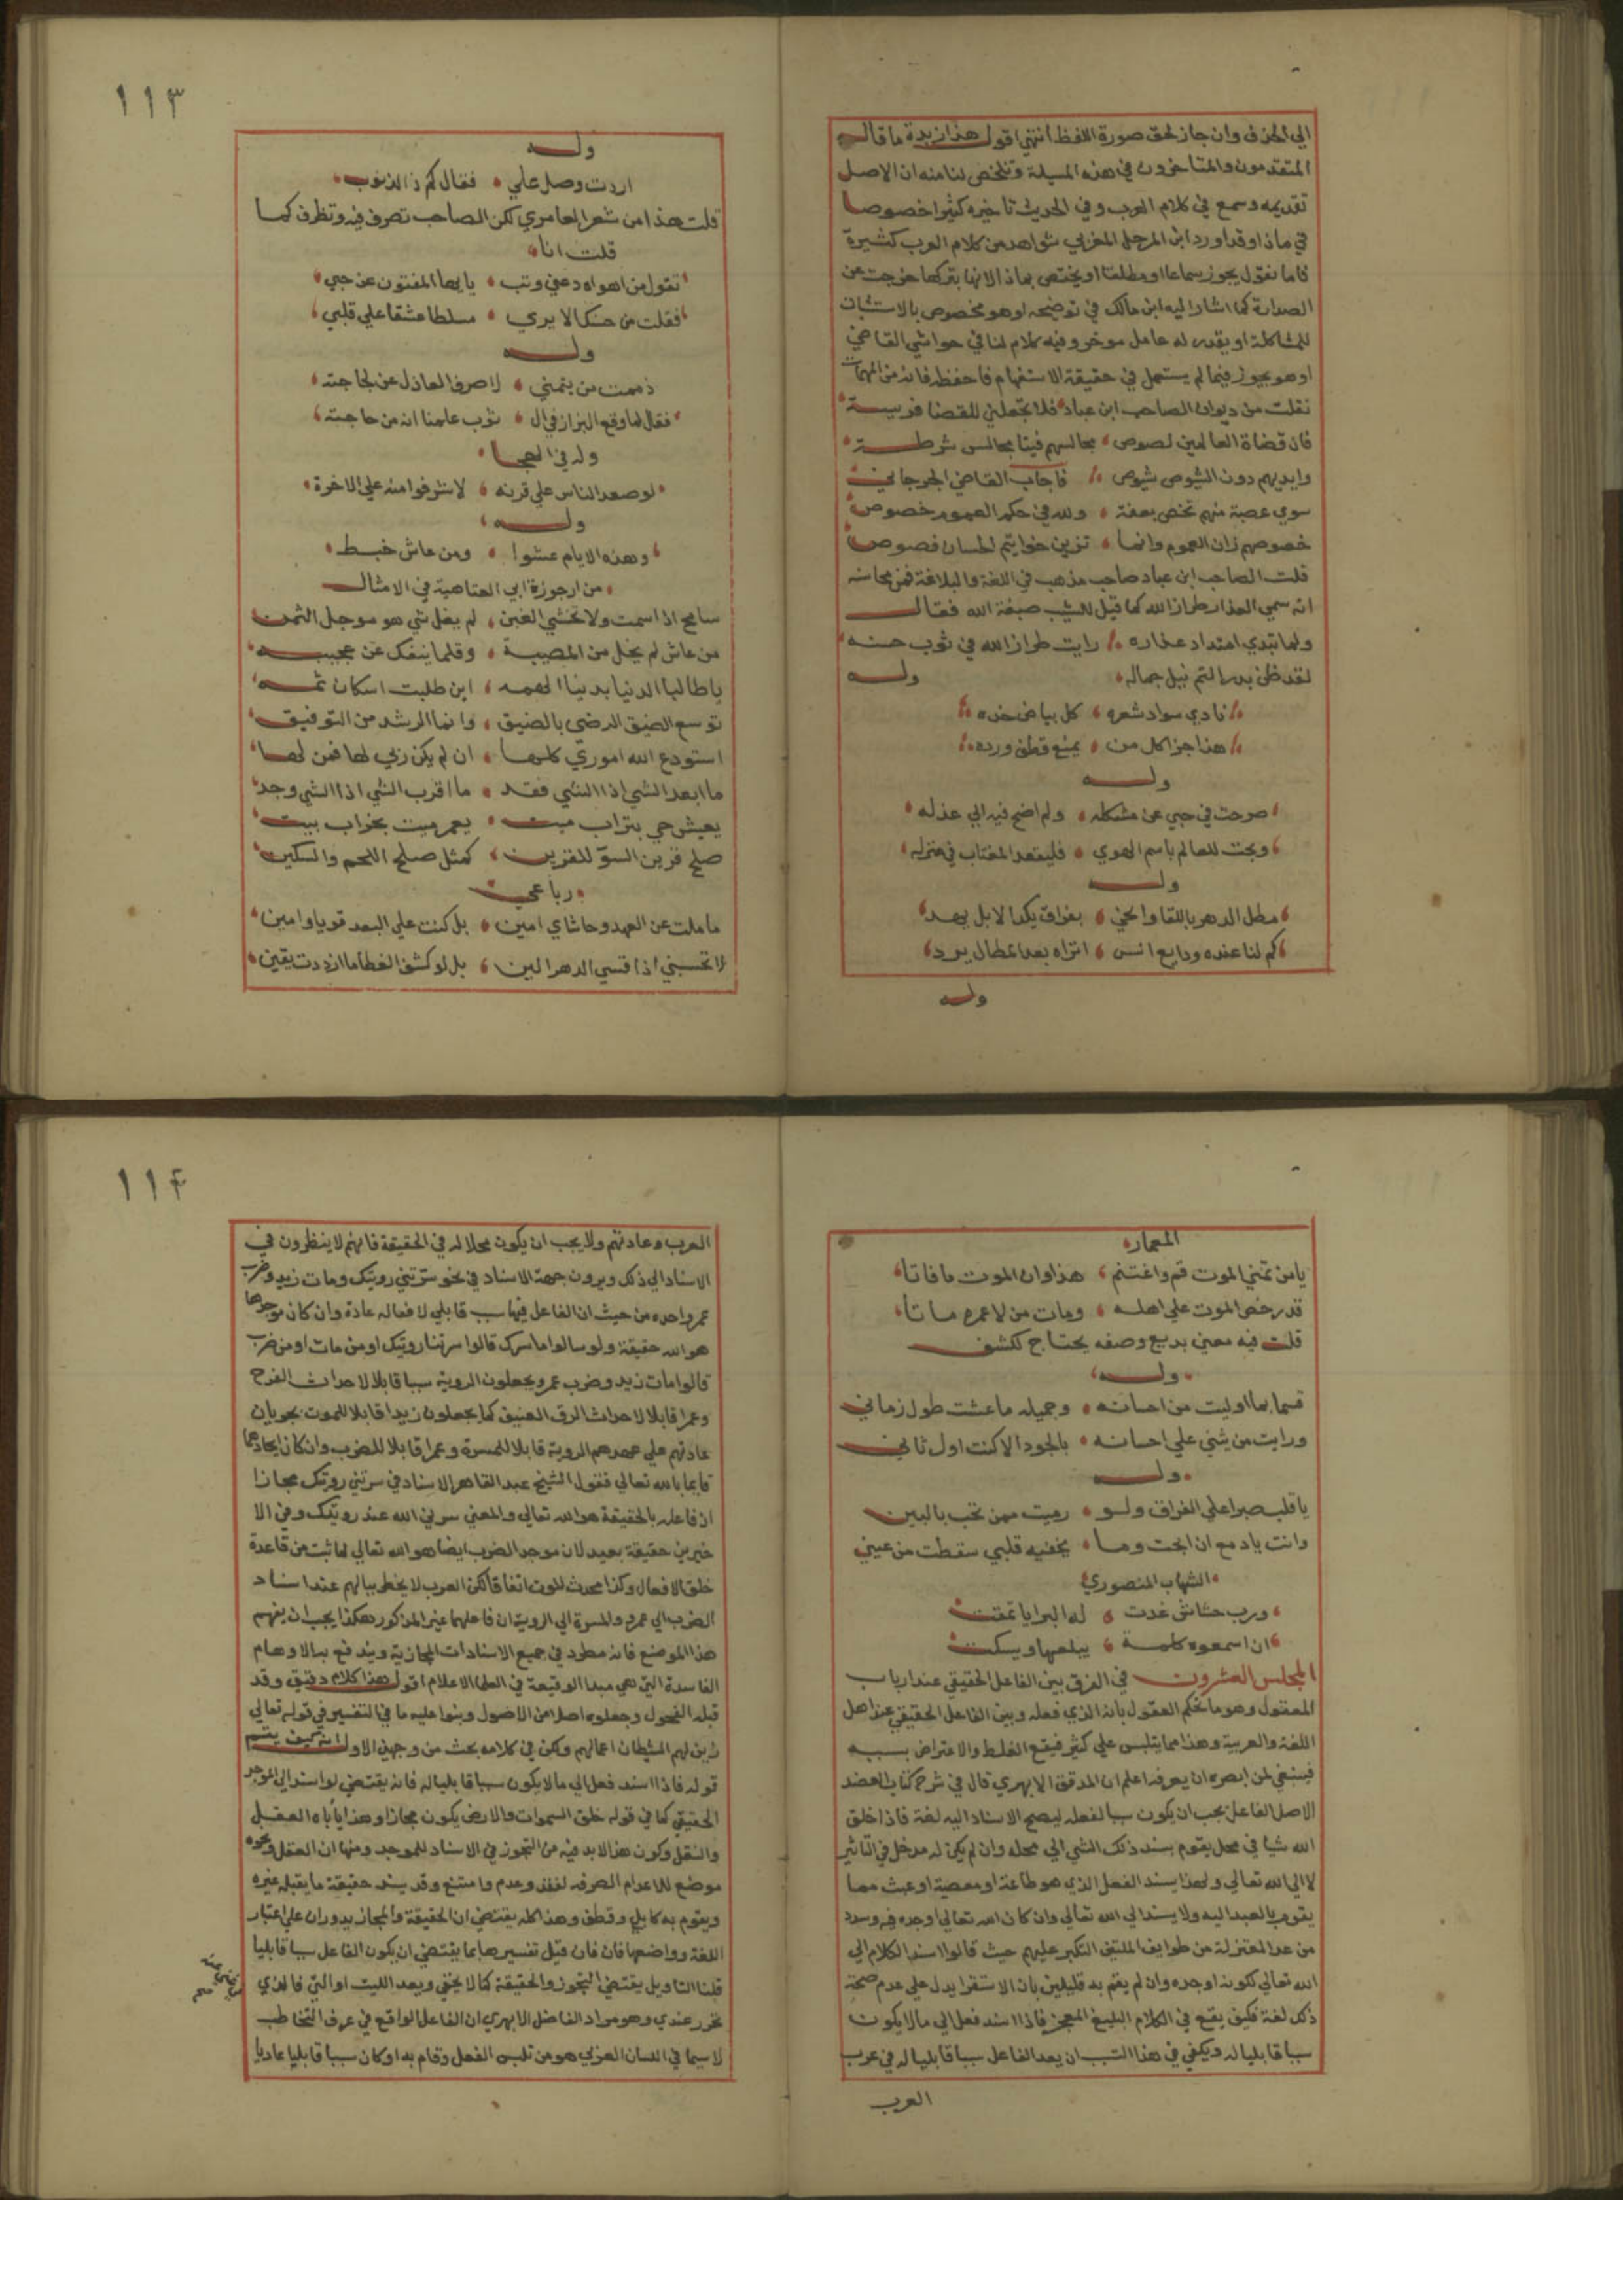 الي الحذف وان جاز لحق صورة اللفظ انتهي اقول هذا زبدة ما قاله
المتقدمون والمتاخرون في هذه المسيلة وتلخص لنا منه ان الاصل
تقديمه وسمع في كلام العرب وفي الحديث تاخيره كثيرا خصوصا
في ماذا وقد اورد ابن المرحل المغربي شواهد من كلام العرب كثيرة
فاما نقول يجوز سماعا او مطلقا او يختص بماذا لانها بتركها خرجت عن
الصدارة كما اشار اليه ابن مالك في توضيحه او هو مخصوص بالاستثبات
للمشاكلة او يقدر له عامل موخر وفيه كلام لنا في حواشي القاضي
او هو يجوز فيما لم يستعمل في حقيقة الاستفهام فاحفظه فانه من المهمات
نقلت من ديوان الصاحب ابن عباد فلا تجعلني للقضا فريسة
فان قضاة العالمين لصوص مجالسهم فينا مجالس شرطة
وايديهم دون الشصوص شصوص فاجاب القاضي الجرجاني
سوي عصبة منهم تخص بعفة ولله في حكم العموم خصوص
خصوصهم زان العموم وانما تزين خواتيم الحسان فصوص
قلت الصاحب ابن عباد صاحب مذهب في اللغة والبلاغة فمن محاسنه
انه سمي العذار طراز الله كما قيل للشيب صبغة الله فقال
ولما تبدي امتداد عذاره رايت طراز الله في ثوب حسنه
لقد ظن بدر التم نيل جماله وله
نادي سواد شعره كل بياض خده
هذا جزا كل من يمنع قطف ورده
وله
صرحت في حبي عن مشكله ولم اضع فيه الي عذله
وبحت للعالم باسم الهوي فليقعد المغتاب في منزله
وله
مطل الدهر باللقا والحي بفراق يكد لا بل يهد
كم لنا عنده ودايع انس اتراه بعد المطال يرد
وله
١١٣
وله
اردت وصل علي فقال كم ذا الذنوب
قلت هذا من شعر العامري لكن الصاحب تصرف فيه وتظرف كما
قلت انا
تقول من اهواه دعني وتب يا ايها المفتون عن حبي
فقلت من حسنك الا يري مسلطا عشقا علي قلبي
وله
ذممت من يتمني لا صرف العاذل عن لجاجته
فقال لما وقع البزاز في ال ثوب علمنا انه من حاجته
وله في الهجا
لو صعد الناس علي قرنه لاشرفوا منه علي الاخرة
وله
وهذه الايام عشوا ومن عاش خبط
من ارجوزة ابي العتاهية في الامثال
سامح اذا سمت ولا تخشي الغبن لم يغل شي هو موجل الثمن
من عاش لم يخل من المصيبة وقلما ينفك عن عجيبه
يا طالبا الدنيا بدنيا الهمه اين طلبت اسكان ثمه
توسع الضيق الرضي بالضيق وانما الرشد من التوفيق
استودع الله اموري كلها ان لم يكن ربي لها فمن لها
ما ابعد الشي اذا الشي فقد ما اقرب الشي اذا الشي وجد
يعيش حي بتراب ميت يعمر ميت بخراب بيت
صلح قرين السوّ للقرين كمثل صلح اللحم والسكين
رباعي
ما ملت عن العهد وحاشاي امين بل كنت علي البعد قويا وامين
لا تحسبني اذا قسي الدهر الين بل لو كشف الغطا ما ازددت يقين
المعمار
يا من تمني الموت قم واغتنم هذا وان الموت ما فاتا
قد رخص الموت علي اهله ومات من لا عمره ماتا
قلت فيه معني بديع وصفه يحتاج لكشف
وله
قسما بما اوليت من احسانه وجميله ما عشت طول زماني
ورايت من يثني علي احسانه بالجود الا كنت اول ثاني
وله
يا قلب صبرا علي الفراق ولو رميت ممن تحب بالبين
وانت يا دمع ان ابحت وما يخفيه قلبي سقطت من عيني
الشهاب المنصوري
ورب حشاش غدت له البرايا تمقت
ان اسمعوه كلمة يبلعها ويسكت
المجلس العشرون في الفرق بين الفاعل الحقيقي عند ارباب
المعقول وهو ما تحكم العقول بانه الذي فعله وبين الفاعل الحقيقي عند اهل
اللغة والعربية وهذا مما يلتبس علي كثير فيقع الغلط والاعتراض بسببه
فينبغي لمن ابصره ان يعرفه اعلم ان المدقق الابهري قال في شرح كتاب العضد
الاصل الفاعل يجب ان يكون سببا لفعله ليصح الاسناد اليه لغة فاذا خلق
الله شيا في محل يقوم بسند ذلك الشي الي محله وان لم يكن له مدخل في التاثير
لا الي الله تعالي ولهذا يسند الفعل الذي هو طاعة او معصية او عبث مما
يقوم بالعبد اليه ولا يسند الي الله تعالي وان كان الله تعالي اوجده فيه وسدد
من عد المعتزلة من طوايف الملتقي النكير عليهم حيث قالوا اسند الكلام الي
الله تعالي لكونه اوجده وان لم يقم به قليلين بان الاستقرا يدل علي عدم صحة
ذلك لغة فكيف يقع في الكلام البليغ المعجز فاذا اسند فعل الي ما لا يكون
سببا قابليا له ويكفي في هذا السبب ان يعد الفاعل سببا قابليا له في عرب
العرب
١١٤
العرب وعادتهم ولا يجب ان يكون محلا له في الحقيقة فانهم لا ينظرون في
الاسناد الي ذلك ويرون جهة الاسناد في نحو سرتني رويتك ومات زيد وضرب
عمر واحده من حيث ان الفاعل فيها سبب قابلي لافعاله عادة وان كان موجدها
هو الله حقيقة ولو سالوا ما سرك قالوا سرتنا رويتك او من مات او من ضرب
قالوا مات زيد وضرب عمر ويجعلون الروية سببا قابلا لاحداث الفرح
وعمرا قابلا لاحداث الرق العنيق كما يجعلون زيدا قابلا للموت بجريان
عادتهم علي عهدهم الروية قابلا للمسرة وعمرا قابلا للضرب وان كان ايجادهما
قايما بالله تعالي فقول الشيخ عبد القاهر الاسناد في سرتني رويتك مجازا
اذ فاعله بالحقيقة هو الله تعالي والمعني سرني الله عند رويتك وفي الا
خيرين حقيقة بعيد لان موجد الضرب ايضا هو الله تعالي لما ثبت من قاعدة
خلق الافعال وكذا محدث الموت اتفاقا لكن العرب لا يخطر ببالهم عند اسناد
الضرب الي عمرو والمسرة الي الروية ان فاعلهما غير المذكور هكذا يجب ان يفهم
هذا الموضع فانه مطرد في جميع الاسنادات المجازية ويندفع به الاوهام
الفاسدة التي هي مبدا الوقيعة في العلما الاعلام اقول هذا كلام دقيق وقد
قبله الفحول وجعلوه اصلا من الاصول وبنوا عليه ما في التفسير في قوله تعالي
زين لهم الشيطان اعمالهم ولكن في كلامه بحث من وجهين الاول انه كيف يتم
قوله فاذا اسند فعل الي ما لا يكون سببا قابليا له فانه يقتضي لو اسند الي الموجد
الحقيقي كما في قوله خلق السموات والارض يكون مجازا وهذا يأباه العقل
والنقل وكون هذا لا بد فيه من التجوز في الاسناد للموجد ومنها ان العقل ونحوه
موضع للاعدام الصرفه لفقد وعدم وامتنع وقد يسند حقيقة ما يقبله غيره
ويقوم به كابلي وقطف وهذا كله يقتضي ان الحقيقة والمجاز يدوران علي اعتبار
اللغة وواضعها فان قيل تفسيرها بما يقتضي ان يكون الفاعل سببا قابليا
قلنا التاويل يقتضي التجوز والحقيقة كما لا يخفي وبعد الليت او التي فالذي
تحرر عندي وهو مراد الفاضل الابهري ان الفاعل الواقع في عرف التخاطب
لا سيما في اللسان العربي هو من تلبس الفعل وقام به او كان سببا قابليا عاديا